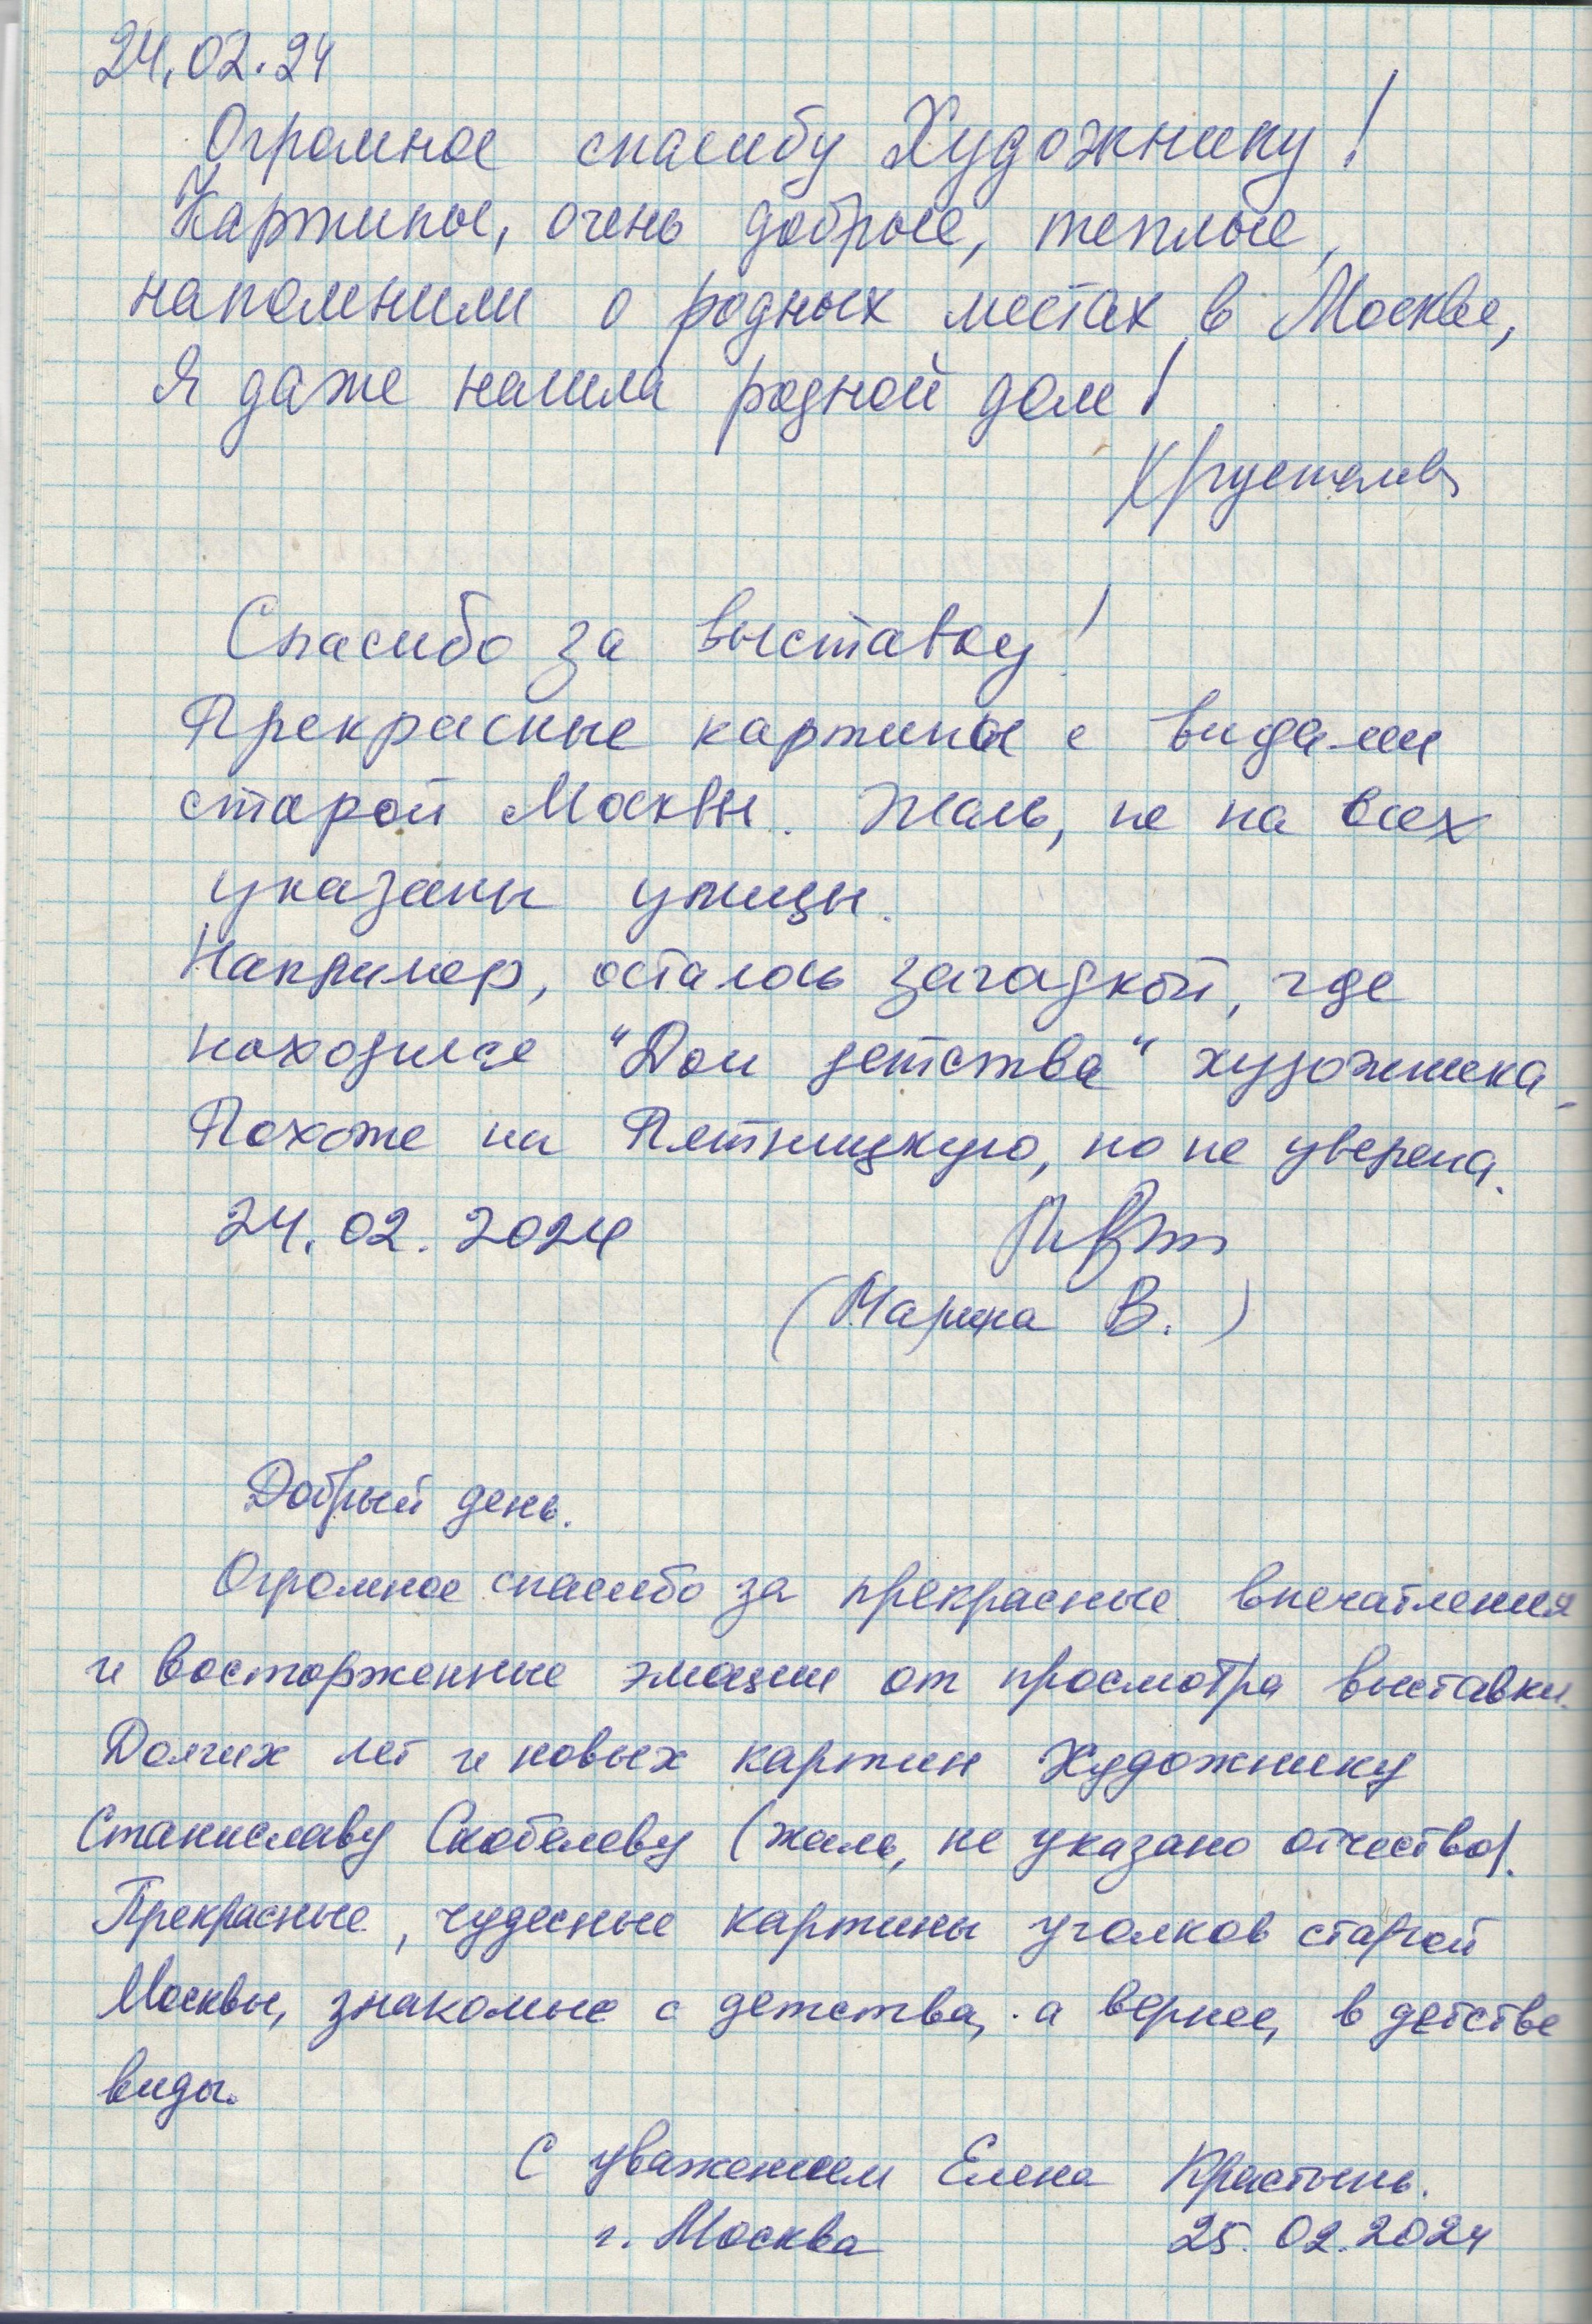 24.02.24
Огромное спасибу Художнику!
Картины, очень добрые, теплые,
напомнили о родных местах в Москве,
Я даже нашла родной дом!
Хрусталева
Спасибо за выставку!
Прекрасные картины с видами
старой Москвы. Жаль, не на всех
указаны улицы.
Например, осталось загадкой, где
находился "Дом детства" художника.
Похоже на Пятницкую, но не уверена.
24.02.2024
(Марина В.)
Добрый день.
Огромное спасибо за прекрасные впечатления
и восторженные эмоции от просмотра выставки.
Долгих лет и новых картин Художнику
Станиславу Скобелеву (жаль, не указано отчество).
Прекрасные, чудесные картины уголков старой
Москвы, знакомые с детства, а вернее, в детстве
виды.
С уважением Елена Крастынь.
г. Москва 25.02.2024